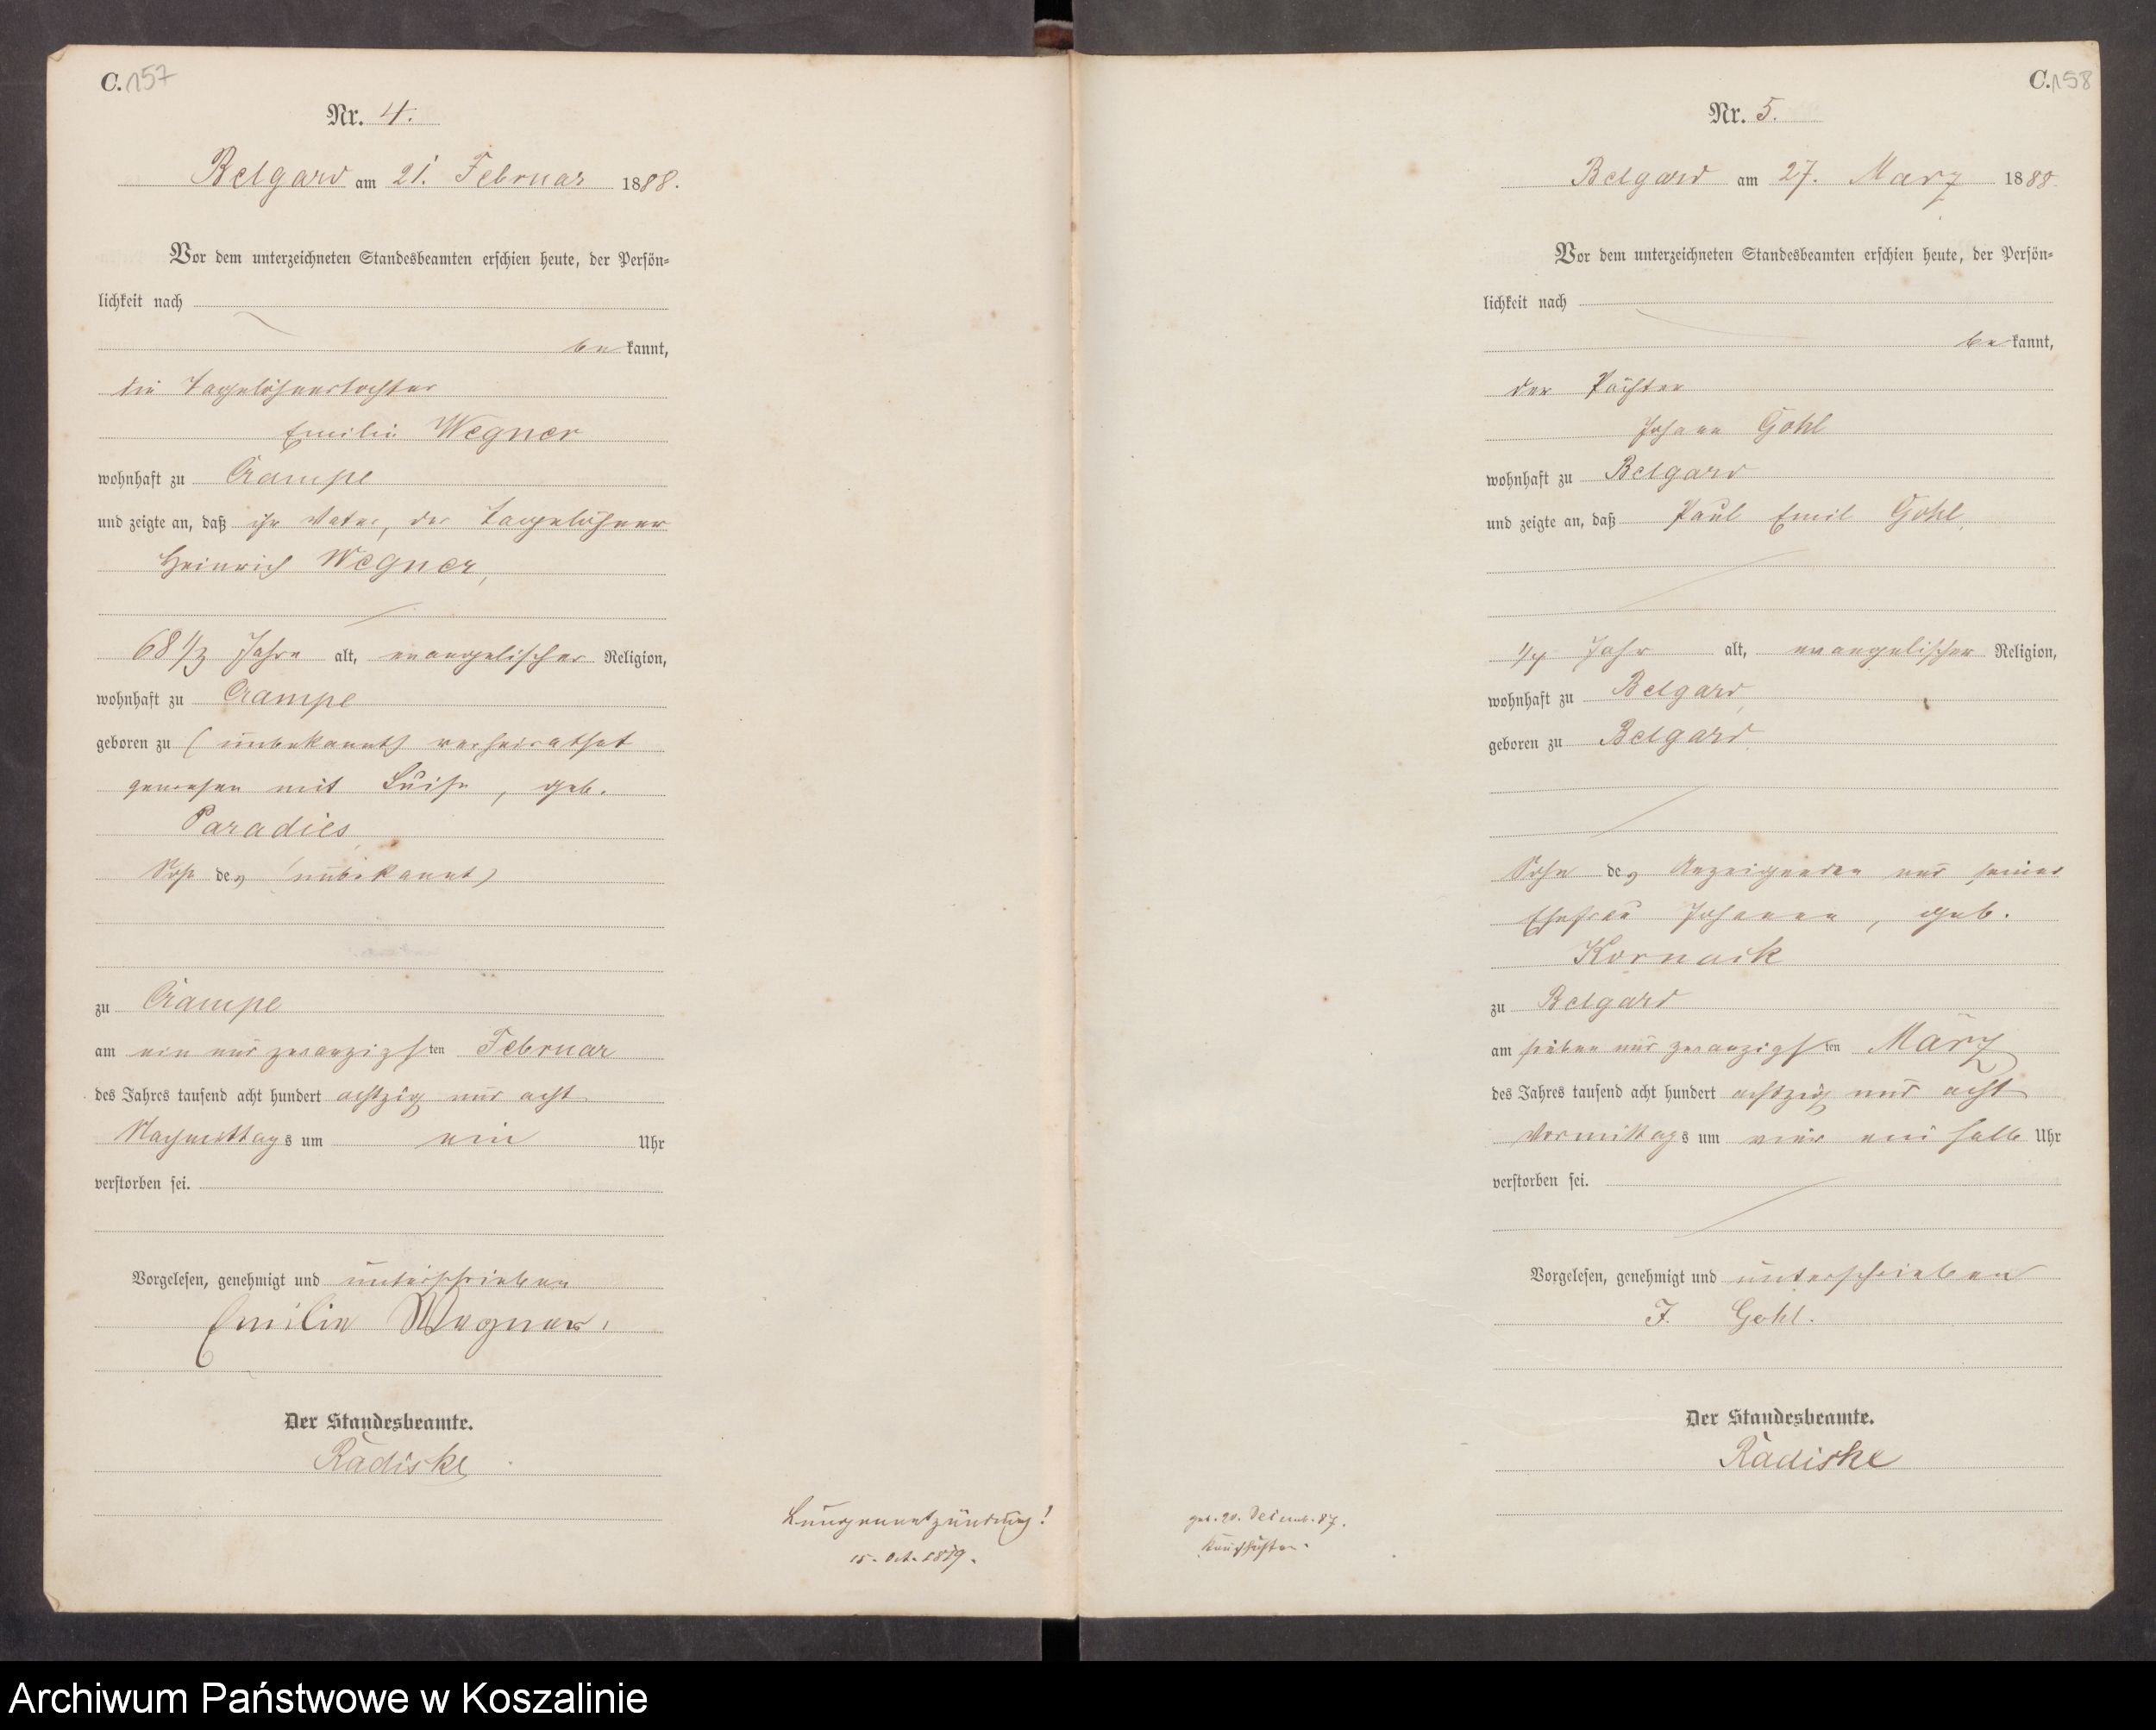 C. 157
Nr. 4.
Belgard am 21. Februar 1888.
Vor dem unterzeichneten Standesbeamten erschien heute, der Persön-
lichkeit nach
be kannt,
die Tagelöhnertochter
Emilie Wegner
wohnhaft zu Crampe
und zeigte an, daß ihr Vater, der Tagelöhner
Heinrich Wegner,
68 1/3 Jahre alt, evangelischer Religion,
wohnhaft zu Crampe
geboren zu (unbekannt) verheirathet
gewesen mit Luise, geb.
Paradies,
Sohn des (unbekannt)
zu Crampe
am ein und zwanzigsten Februar
des Jahres tausend acht hundert achtzig und acht
Nachmittags um ein Uhr
verstorben sei.
Vorgelesen, genehmigt und unterschrieben
Emilie Wegner.
Der Standesbeamte.
Radiske
Lungenentzündung!
15. Oct. 1819.
C. 158
Nr. 5.
Belgard am 27. März 1888
Vor dem unterzeichneten Standesbeamten erschien heute, der Persön-
lichkeit nach
be kannt,
der Pächter
Johann Gohl
wohnhaft zu Belgard
und zeigte an, daß Paul Emil Gohl,
1/4 Jahr alt, evangelischer Religion,
wohnhaft zu Belgard,
geboren zu Belgard,
Sohn des Anzeigenden und seiner
Ehefrau Johanne, geb.
Kornack
zu Belgard
am sieben und zwanzigsten März
des Jahres tausend acht hundert achtzig und acht
Vormittags um vier ein halb Uhr
verstorben sei.
Vorgelesen, genehmigt und unterschrieben
J. Gohl.
Der Standesbeamte.
Radiske
geb. 20. Decemb. 87.
Archiwum Państwowe w Koszalinie